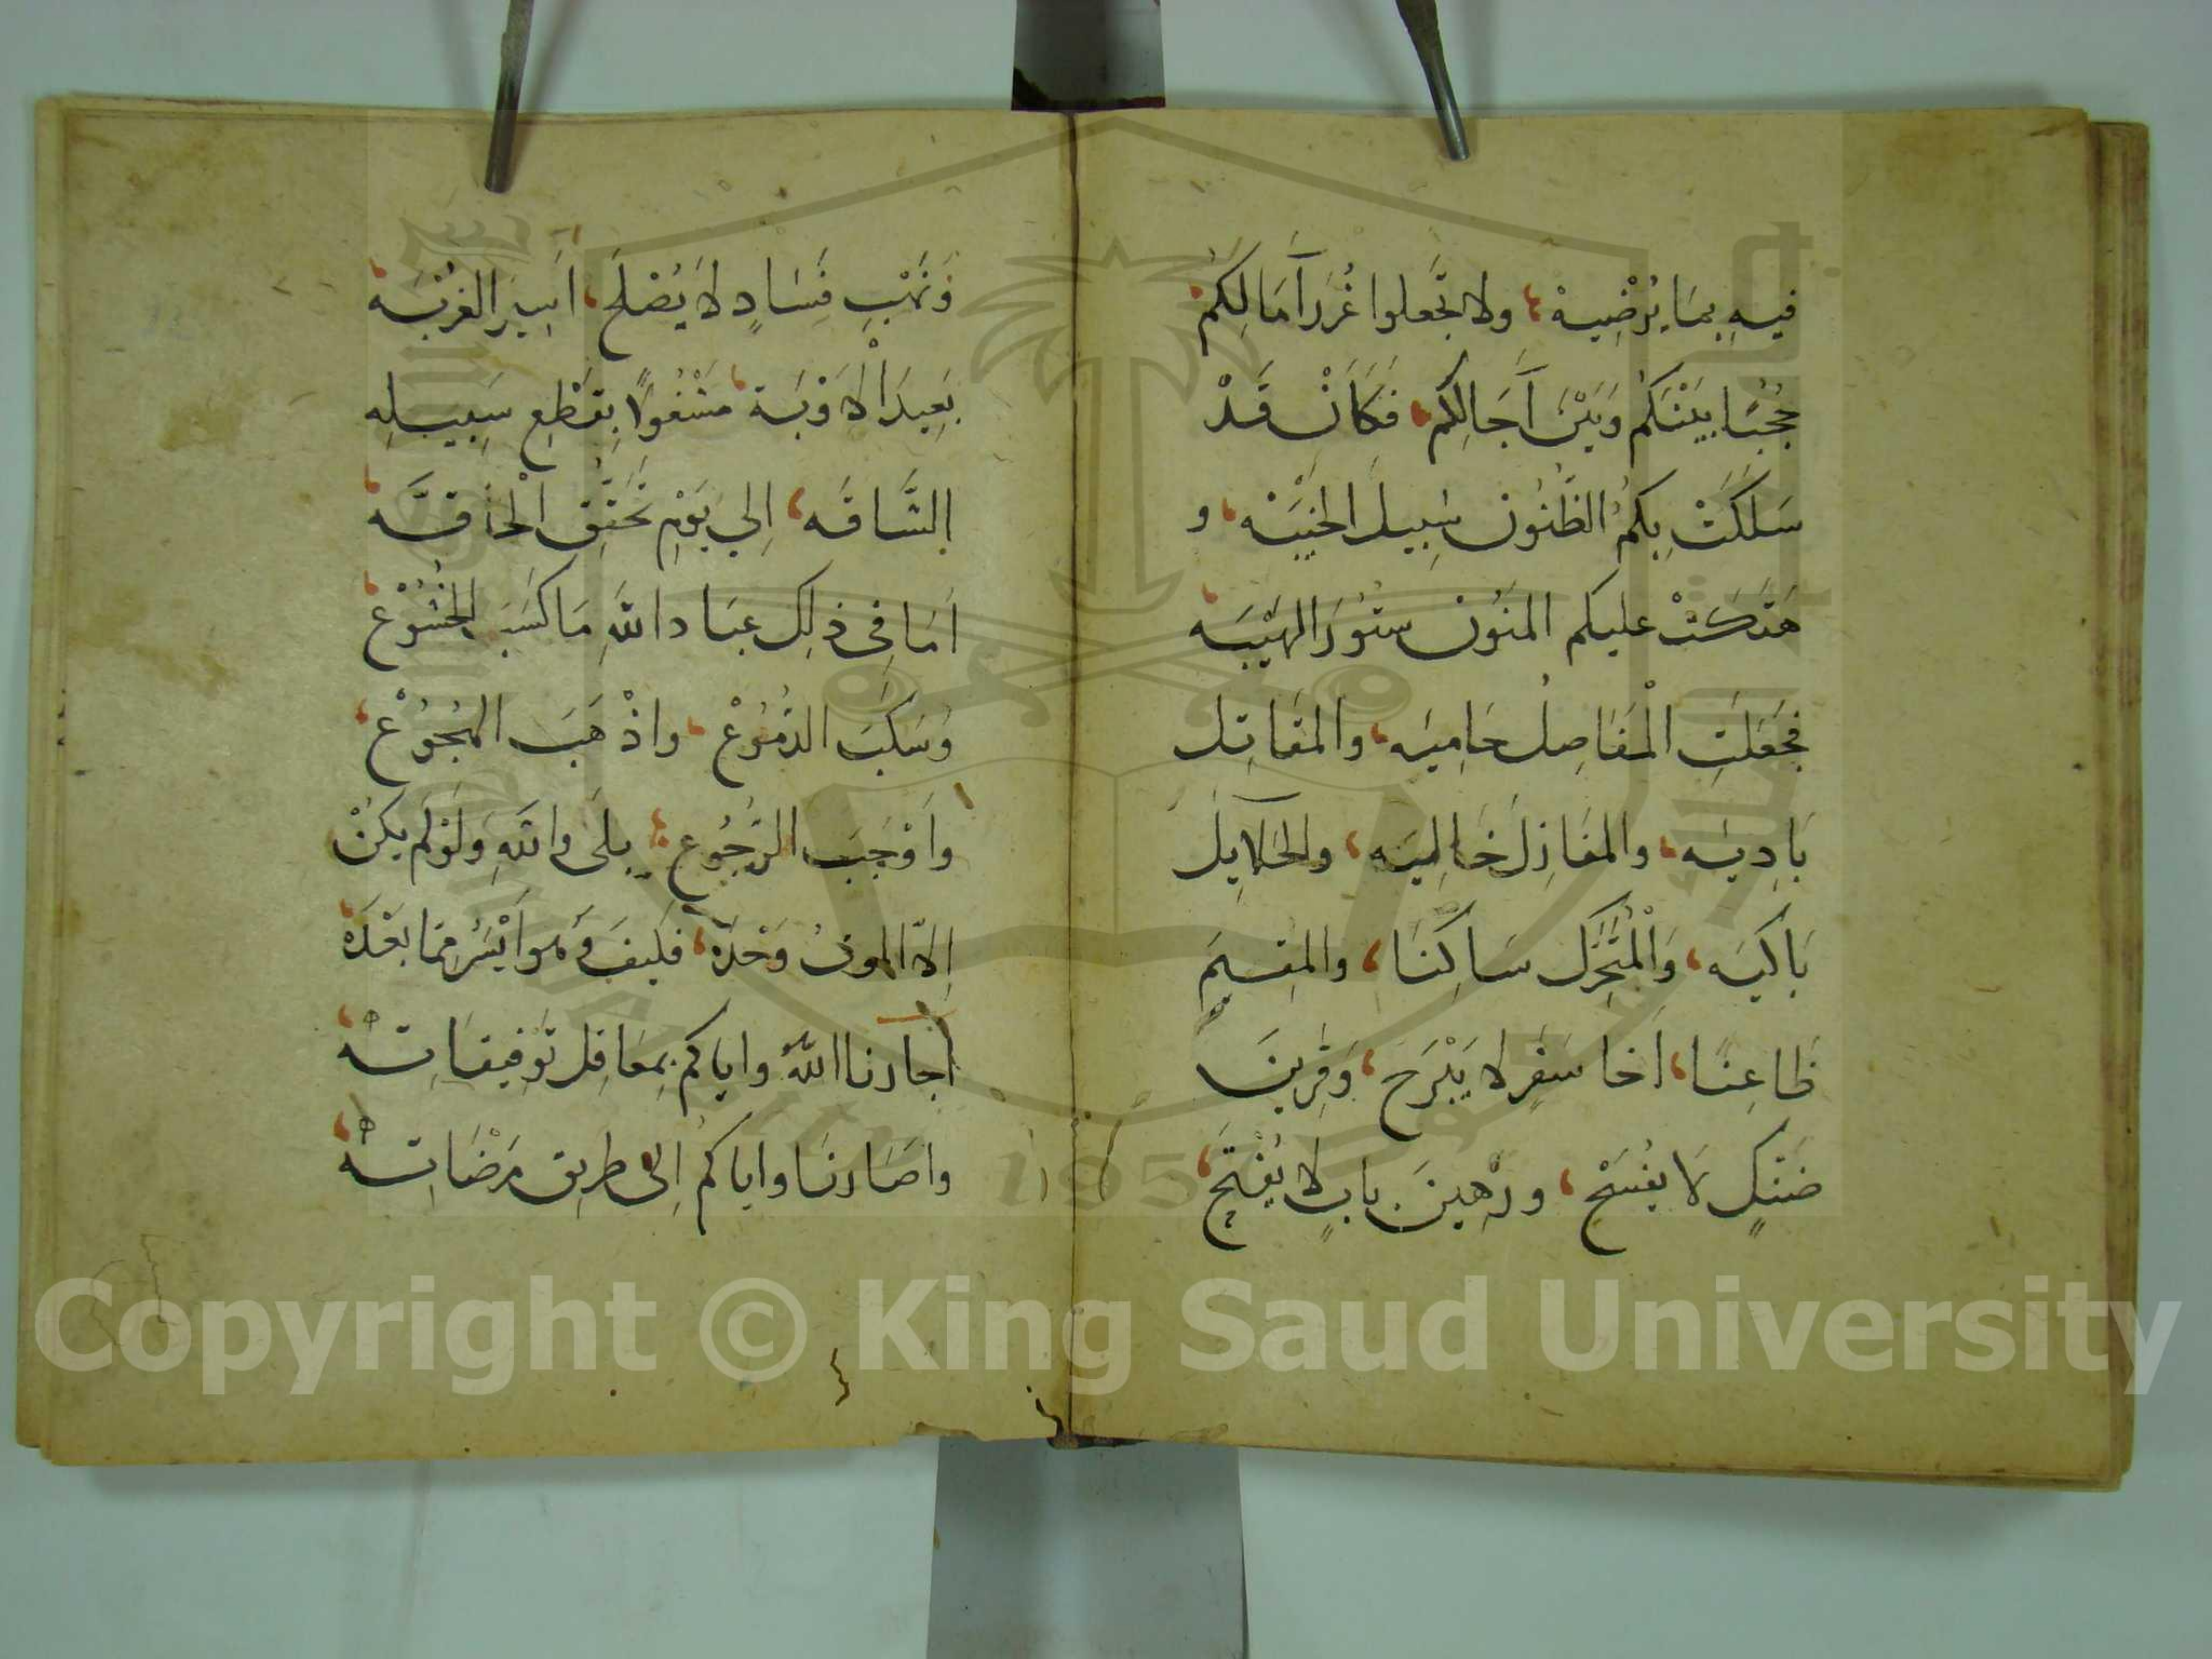 فِيهِ بِمَا يُرْضِيهْ، ولا تَجَّعلوا غُرَرَ آمَالِكُمْ
حُجُبًا بَيْنَكُم وَبَيْنَ آجَالِكُم، فَكَأَنْ قَدْ
سَلَكَتْ بِكُمُ الظُّنُون سَبِيلَ الخَيْبَه، و
هَتَكَتْ عليكم المَنُون سُتُورَ الهَيْبَه
فَجَعَلَتِ الْمَفَاصِل حَامِيَه، والمَقَاتِل
بَادِيَه، والمَنَازِل خَالِيَه، والحَلَايِل
بَاكِيَه، وَالْمُتَحَرِّك سَاكِنَا، والمُقِيمَ
ظَاعِنَا، أخا سَفَرٍ لا يَبْرَح، وَقَرِينَ
ضَنْكٍ لَا يُفْسَحْ، ورَهِينَ بابٍ لا يُفْتَح،
وَنَهْبِ فَسَادٍ لَا يُصْلَح، أَسِيرَ الغُرْبَه
بَعِيدَ الْاَوْبَة، مَشْغُولًا بِقَطْعِ سَبِيلِه
الشَّاقَّه، اِلي يَوْمِ تَحَقُّقِ الْحَاقَّه
اَمَا فِي ذلِك عبَاد اللَّهِ مَا كَسَبَ الخُشُوْع
وَسَكَبَ الدُّمُوْع، واذْهَبَ الهُجُوْع،
وَاَوْجَبَ الرُّجُوع، بَلَى واللَّهِ وَلَوْ لَم يَكُنْ
اِلاّ الموتُ وَحْدَهْ، فكيفَ وَهو اَيْسَرُ مِمّا بَعْدَهْ
أجارنا اللَّهُ واياكم بِمَعَاقِل تَوْفِيقَاتِهْ
واصَارنَا واياكمُ اِلى طريق مَرْضَاتِهْ
Copyright © King Saud University